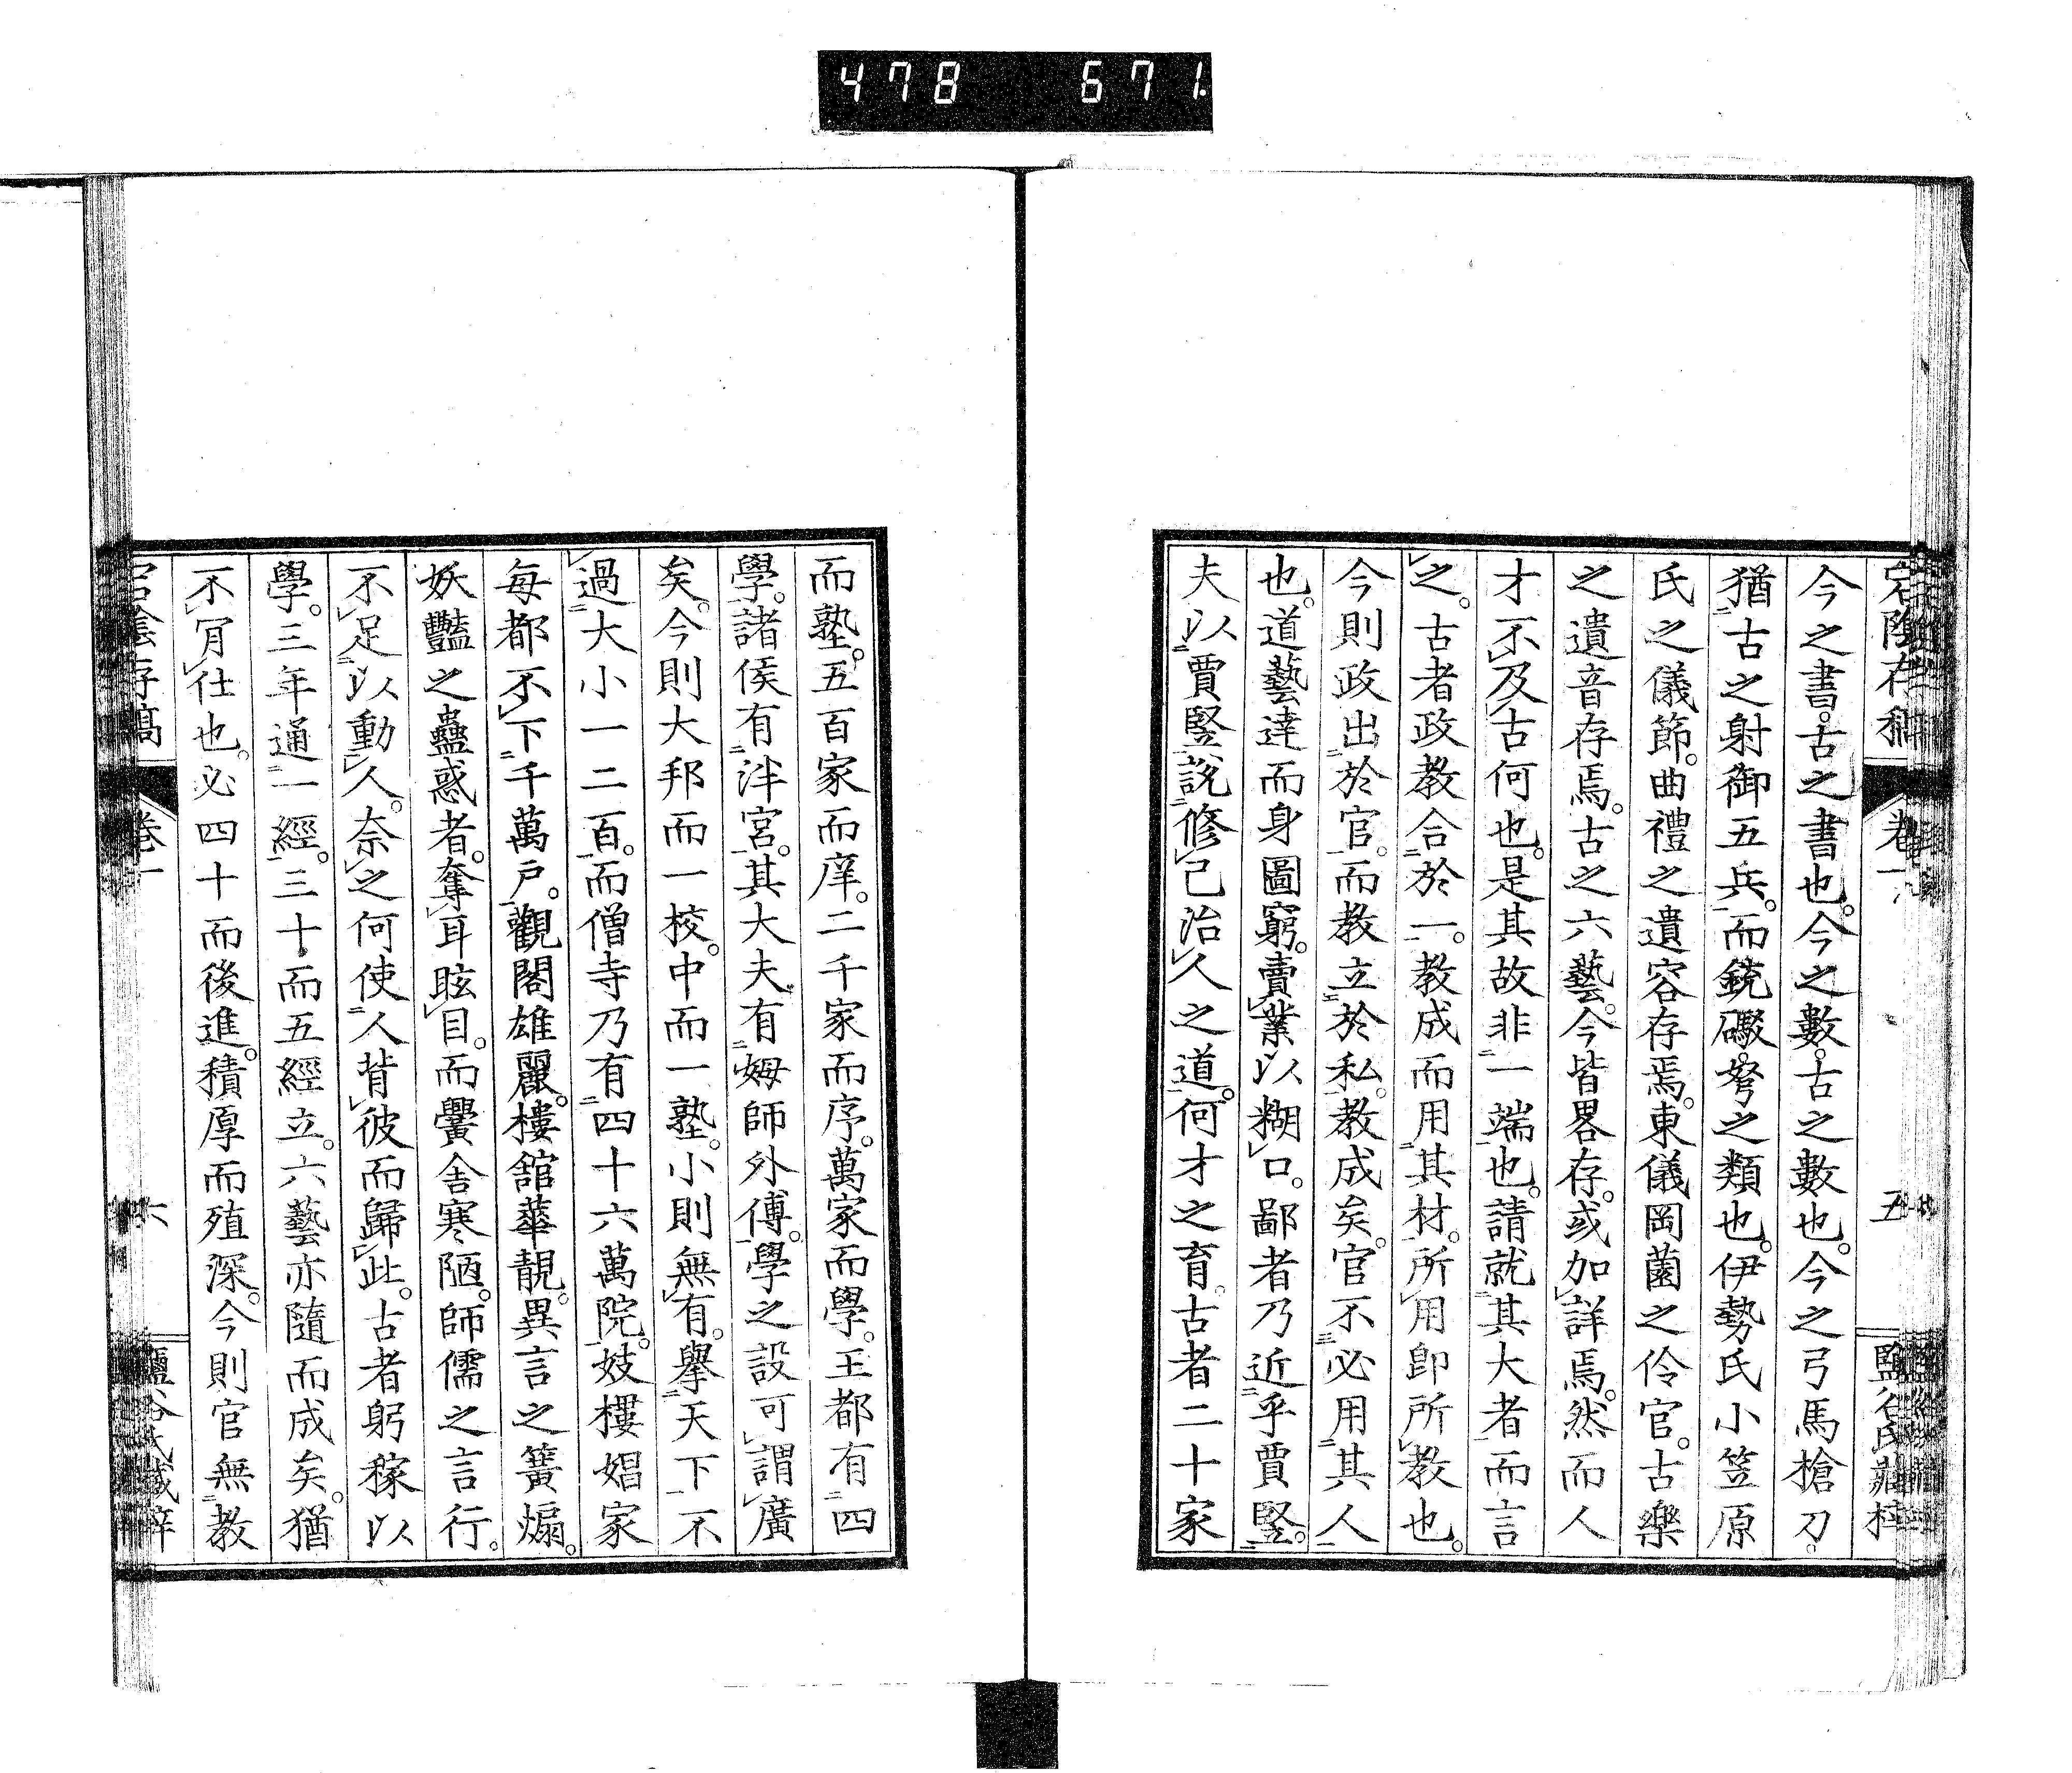 478 671.
今之書。古之書也。今之數。古之數也。今之弓馬槍刀。
猶古之射御五兵。而銃礮弩之類也。伊勢氏小笠原
氏之儀節。曲禮之遺容存焉。東儀岡薗之伶官。古樂
之遺音存焉。古之六藝。今皆畧存。或加詳焉。然而人
才不及古何也。是其故非一端也。請就其大者而言
之。古者政教合於一。教成而用其材。所用卽所教也。
今則政出於官。而教立於私。教成矣。官不必用其人
也。道藝達而身圖窮。賣業以糊口。鄙者乃近乎賈豎。
夫以賈豎說修己治人之道。何才之育。古者二十家
而塾。五百家而庠。二千家而序。萬家而學。王都有四
學。諸侯有泮宮。其大夫有姆師外傅。學之設可謂廣
矣。今則大邦而一校。中而一塾。小則無有。擧天下不
過大小一二百。而僧寺乃有四十六萬院。妓樓娼家
每都不下千萬戶。觀閣雄麗。樓舘華靚。異言之簧煽。
妖豔之蠱惑者。奪耳眩目。而黌舍寒陋。師儒之言行。
不足以動人。奈之何使人背彼而歸此。古者躬稼以
學。三年通一經。三十而五經立。六藝亦隨而成矣。猶
不肎仕也。必四十而後進。積厚而殖深。今則官無教
卷一
六